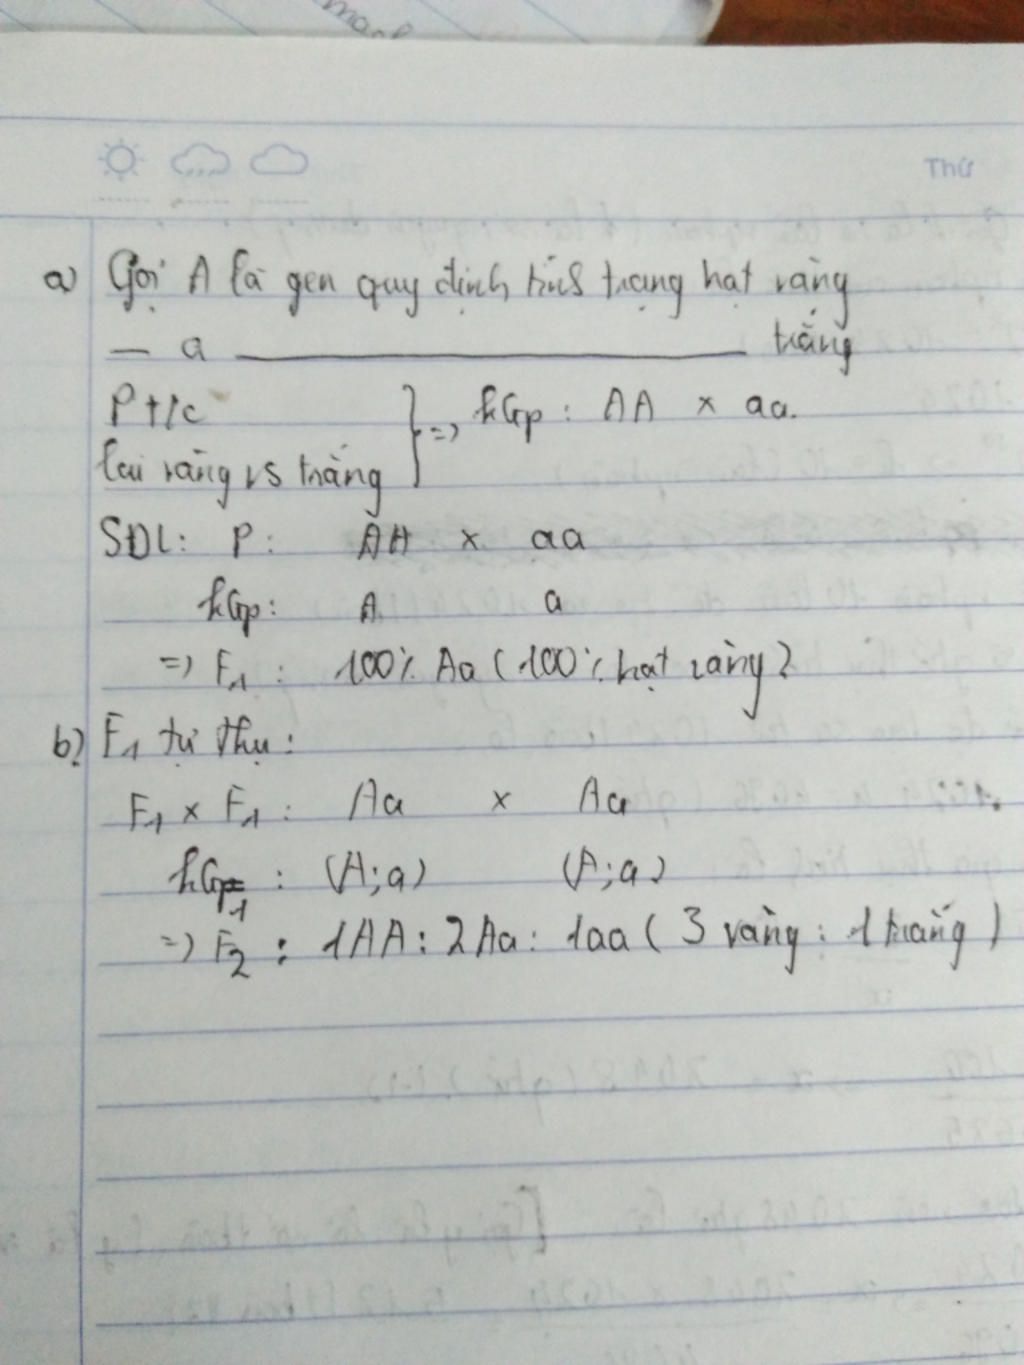 Thứ
a) Gọi A là gen quy định tính trạng hạt vàng
— a ——— trắng
P t/c
lai vàng vs trắng } => kGp : AA × aa.
SĐL: P: AA × aa
kGp: A a
=> F1 : 100% Aa (100% hạt vàng)
b) F1 tự thụ :
F1 × F1 : Aa × Aa
kGF1 : (A;a) (A;a)
=> F2 : 1AA : 2Aa : 1aa ( 3 vàng : 1 trắng )